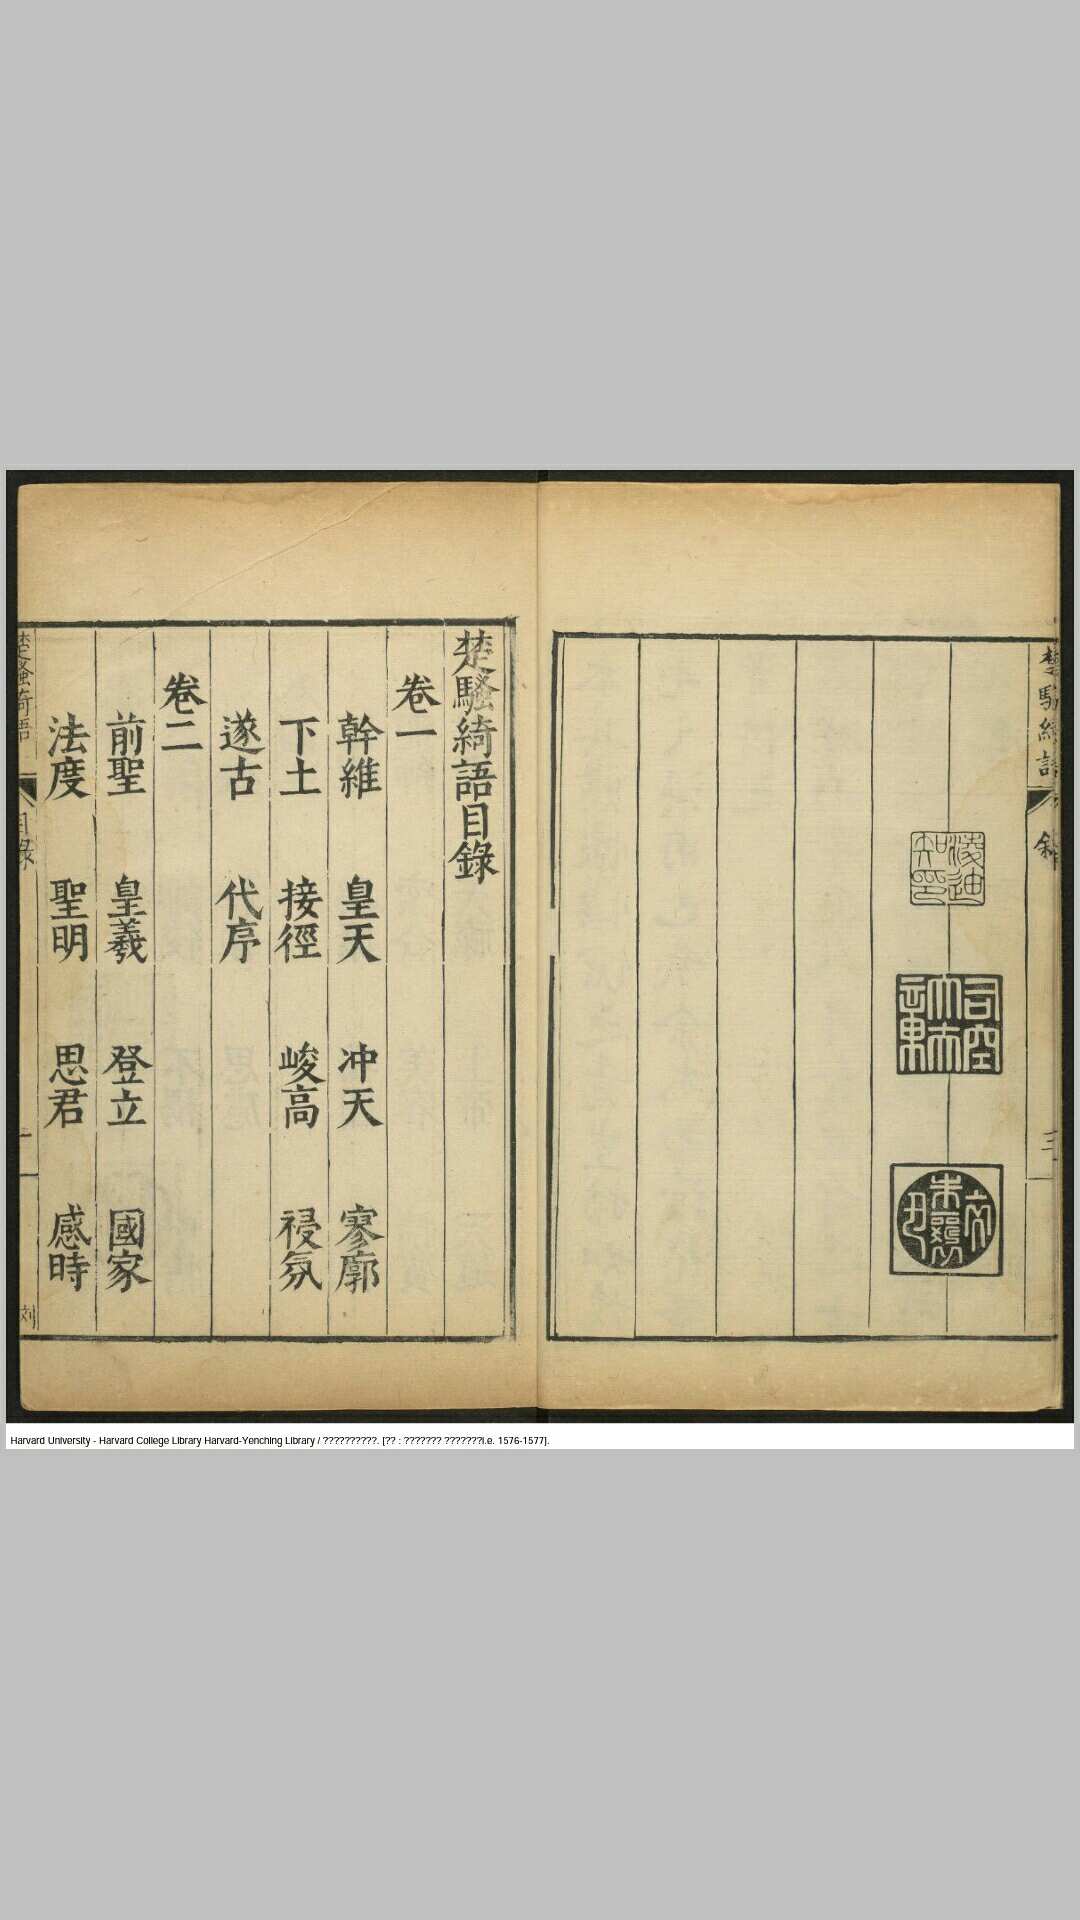 楚騷綺語
敘
三
凌迪
知印
司空
大夫
朱
楚騷綺語目錄
卷一
幹維 皇天 冲天 寥廓
下土 接徑 峻高 祲氛
遂古 代序
卷二
前聖 皇羲 登立 國家
法度 聖明 思君 感時
楚騷綺語
目錄
一
Harvard University - Harvard College Library Harvard-Yenching Library / ??????????. [?? : ??????? ???????i.e. 1576-1577].